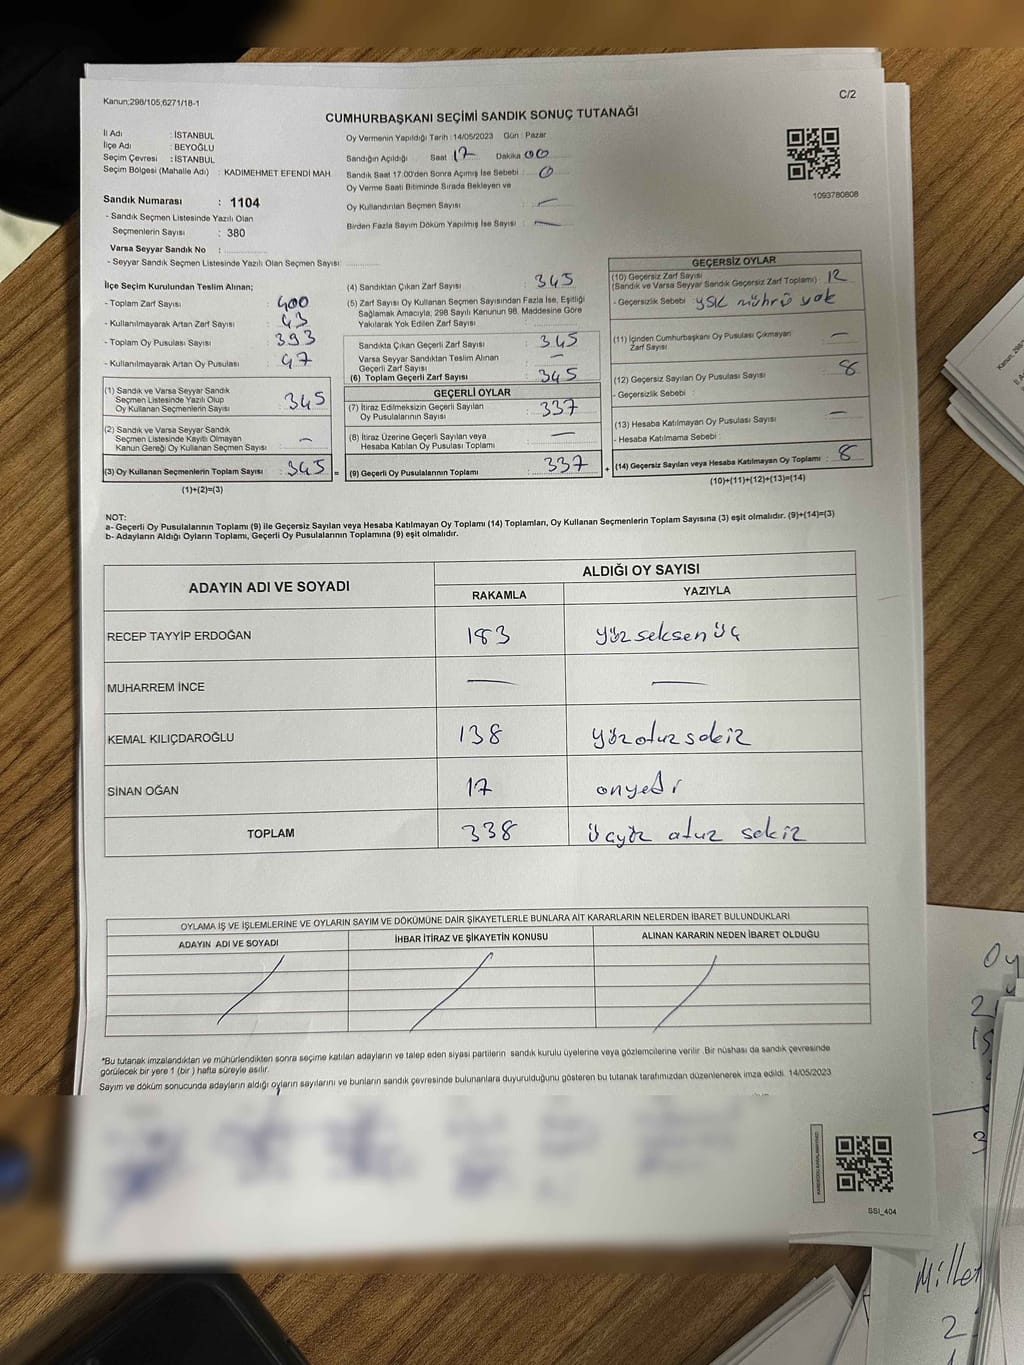 Kanun;298/105,6271/18-1
C/2
CUMHURBAŞKANI SEÇİMİ SANDIK SONUÇ TUTANAĞI
İl Adı : İSTANBUL
İlçe Adı : BEYOĞLU
Seçim Çevresi : İSTANBUL
Seçim Bölgesi (Mahalle Adı) : KADIMEHMET EFENDİ MAH.
Sandık Numarası : 1104
- Sandık Seçmen Listesinde Yazılı Olan
Seçmenlerin Sayısı : 380
Varsa Seyyar Sandık No :
- Seyyar Sandık Seçmen Listesinde Yazılı Olan Seçmen Sayısı:
Oy Vermenin Yapıldığı Tarih :14/05/2023 Gün : Pazar
Sandığın Açıldığı Saat 17 Dakika 00
Sandık Saat 17:00'den Sonra Açmış İse Sebebi : 0
Oy Verme Saati Bitiminde Sırada Bekleyen ve
Oy Kullandırılan Seçmen Sayısı : —
Birden Fazla Sayım Döküm Yapılmış İse Sayısı : —
1093780808
İlçe Seçim Kurulundan Teslim Alınan;
- Toplam Zarf Sayısı : 400
- Kullanılmayarak Artan Zarf Sayısı : 43
- Toplam Oy Pusulası Sayısı : 393
- Kullanılmayarak Artan Oy Pusulası : 47
(1) Sandık ve Varsa Seyyar Sandık
Seçmen Listesinde Yazılı Olup
Oy Kullanan Seçmenlerin Sayısı : 345
(2) Sandık ve Varsa Seyyar Sandık
Seçmen Listesinde Kayıtlı Olmayan
Kanun Gereği Oy Kullanan Seçmen Sayısı : —
(3) Oy Kullanan Seçmenlerin Toplam Sayısı : 345 =
(1)+(2)=(3)
(4) Sandıktan Çıkan Zarf Sayısı : 345
(5) Zarf Sayısı Oy Kullanan Seçmen Sayısından Fazla İse, Eşitliği
Sağlamak Amacıyla; 298 Sayılı Kanunun 98. Maddesine Göre
Yakılarak Yok Edilen Zarf Sayısı :
Sandıkta Çıkan Geçerli Zarf Sayısı : 345
Varsa Seyyar Sandıktan Teslim Alınan
Geçerli Zarf Sayısı : —
(6) Toplam Geçerli Zarf Sayısı : 345
GEÇERLİ OYLAR
(7) İtiraz Edilmeksizin Geçerli Sayılan
Oy Pusulalarının Sayısı : 337
(8) İtiraz Üzerine Geçerli Sayılan veya
Hesaba Katılan Oy Pusulası Toplamı : —
(9) Geçerli Oy Pusulalarının Toplamı : 337 +
GEÇERSİZ OYLAR
(10) Geçersiz Zarf Sayısı
(Sandık ve Varsa Seyyar Sandık Geçersiz Zarf Toplamı) : 12
- Geçersizlik Sebebi : YSK mührü yok
(11) İçinden Cumhurbaşkanı Oy Pusulası Çıkmayan
Zarf Sayısı : —
(12) Geçersiz Sayılan Oy Pusulası Sayısı : 8
- Geçersizlik Sebebi :
(13) Hesaba Katılmayan Oy Pusulası Sayısı : —
- Hesaba Katılmama Sebebi :
(14) Geçersiz Sayılan veya Hesaba Katılmayan Oy Toplamı : 8
(10)+(11)+(12)+(13)=(14)
NOT:
a- Geçerli Oy Pusulalarının Toplamı (9) ile Geçersiz Sayılan veya Hesaba Katılmayan Oy Toplamı (14) Toplamları, Oy Kullanan Seçmenlerin Toplam Sayısına (3) eşit olmalıdır. (9)+(14)=(3)
b- Adayların Aldığı Oyların Toplamı, Geçerli Oy Pusulalarının Toplamına (9) eşit olmalıdır.
ADAYIN ADI VE SOYADI
ALDIĞI OY SAYISI
RAKAMLA YAZIYLA
RECEP TAYYİP ERDOĞAN 183 yüz seksen üç
MUHARREM İNCE — —
KEMAL KILIÇDAROĞLU 138 yüzotuz sekiz
SİNAN OĞAN 17 onyedi
TOPLAM 338 üçyüz otuz sekiz
OYLAMA İŞ VE İŞLEMLERİNE VE OYLARIN SAYIM VE DÖKÜMÜNE DAİR ŞİKAYETLERLE BUNLARA AİT KARARLARIN NELERDEN İBARET BULUNDUKLARI
ADAYIN ADI VE SOYADI İHBAR İTİRAZ VE ŞİKAYETİN KONUSU ALINAN KARARIN NEDEN İBARET OLDUĞU
*Bu tutanak imzalandıktan ve mühürlendikten sonra seçime katılan adayların ve talep eden siyasi partilerin sandık kurulu üyelerine veya gözlemcilerine verilir. Bir nüshası da sandık çevresinde
görülecek bir yere 1 (bir ) hafta süreyle asılır.
Sayım ve döküm sonucunda adayların aldığı oyların sayılarını ve bunların sandık çevresinde bulunanlara duyurulduğunu gösteren bu tutanak tarafımızdan düzenlenerek imza edildi. 14/05/2023
SSİ_404
Oy
Millet